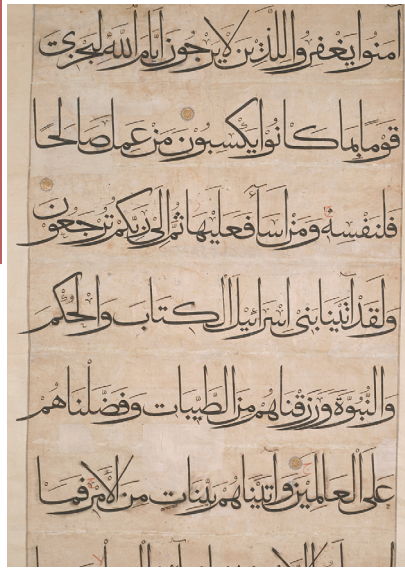 آمنوا يغفروا للذين لا يرجون أيام الله ليجزى
قوما بما كانوا يكسبون من عمل صالحا
فلنفسه ومن اسآء فعليها ثم إلى ربكم ترجعون
ولقد اتينا بنى اسرائيل الكتاب والحكم
والنبوة ورزقناهم من الطيبات وفضلناهم
على العالمين واتيناهم بينات من الامر فما